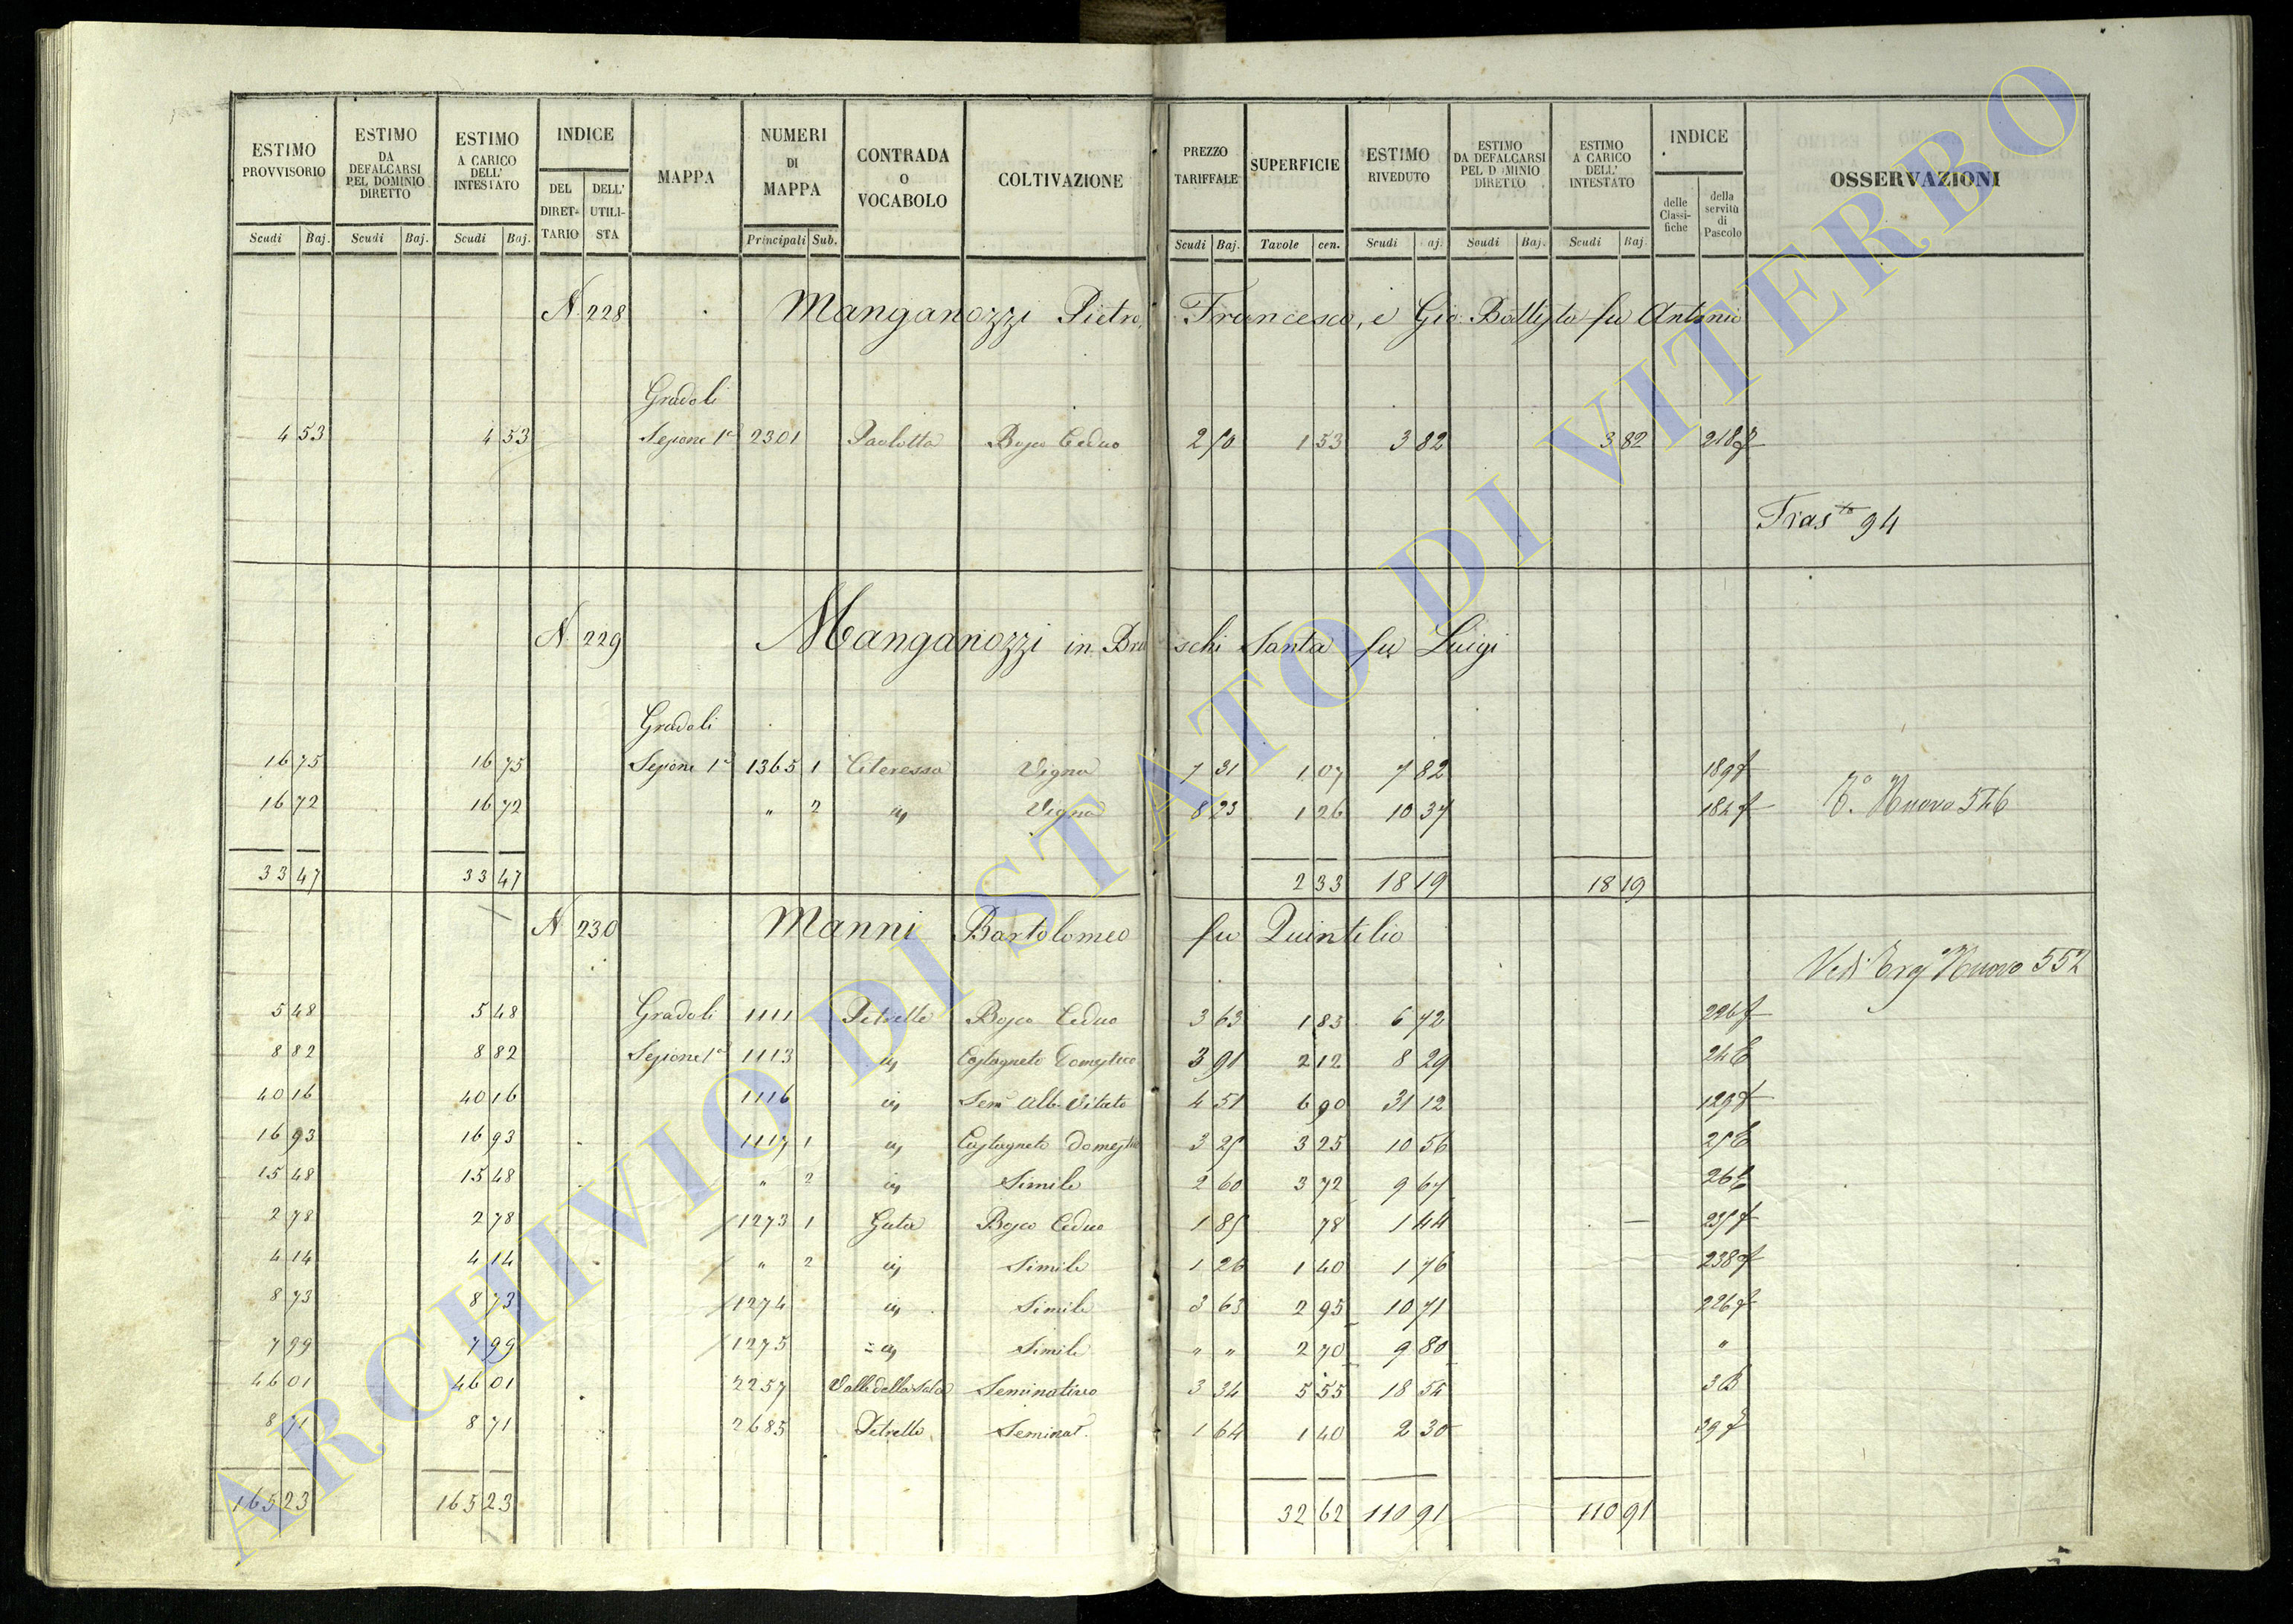 ESTIMO PROVVISORIO Scudi Baj. ESTIMO DA DEFALCARSI PEL DOMINIO DIRETTO Scudi Baj. ESTIMO A CARICO DELL' INTESTATO Scudi Baj. INDICE DEL DIRETTARIO DELL' UTILISTA MAPPA NUMERI DI MAPPA Principali Sub. CONTRADA O VOCABOLO COLTIVAZIONE PREZZO TARIFFALE Scudi Baj. SUPERFICIE Tavole cen. ESTIMO RIVEDUTO Scudi aj. ESTIMO DA DEFALCARSI PEL DOMINIO DIRETTO Scudi Baj. ESTIMO A CARICO DELL' INTESTATO Scudi Baj. INDICE delle Classifiche della servitù di Pascolo OSSERVAZIONI
N. 228 Manganozzi Pietro, Francesco, e Gio. Battista fu Antonio
Gradoli
4 53 4 53 Sezione 1a 2301 Paolotta Bosco Ceduo 2 50 1 53 3 82 3 82 218 f
Tras.to 94
N. 229 Manganozzi in Bruschi Santa fu Luigi
Gradoli
16 75 16 75 Sezione 1a 1365 1 Citeressa Vigna 7 31 1 07 7 82 189 f
16 72 16 72 " 2 " Vigna 8 23 1 26 10 37 184 f Nuovo 546
33 47 33 47 2 33 18 19 18 19
N. 230 Manni Bartolomeo fu Quintilio
Vedi Nuovo 552
5 48 5 48 Gradoli 1111 Petrelle Bosco Ceduo 3 63 1 85 6 72 226 f
8 82 8 82 Sezione 1a 1113 " Castagneto Domestico 3 91 2 12 8 29 24
40 16 40 16 1116 " Sem. Alb. Vitato 4 51 6 90 31 12 129 f
16 93 16 93 1117 1 " Castagneto domestico 3 25 3 25 10 56 25
15 48 15 48 " 2 " Simile 2 60 3 72 9 67 26
2 78 2 78 1273 1 Guta Bosco Ceduo 1 85 78 1 44 235 f
4 14 4 14 " 2 " Simile 1 26 1 40 1 76 238 f
8 73 8 73 1274 " Simile 3 63 2 95 10 71 226 f
7 99 7 99 1275 " Simile " " 2 70 9 80 "
46 01 46 01 2257 Valle della Sala Seminativo 3 34 5 55 18 54 3
8 71 8 71 2685 Petrelle Seminat. 1 64 1 40 2 30 39 f
165 23 165 23 32 62 110 91 110 91
ARCHIVIO DI STATO DI VITERBO